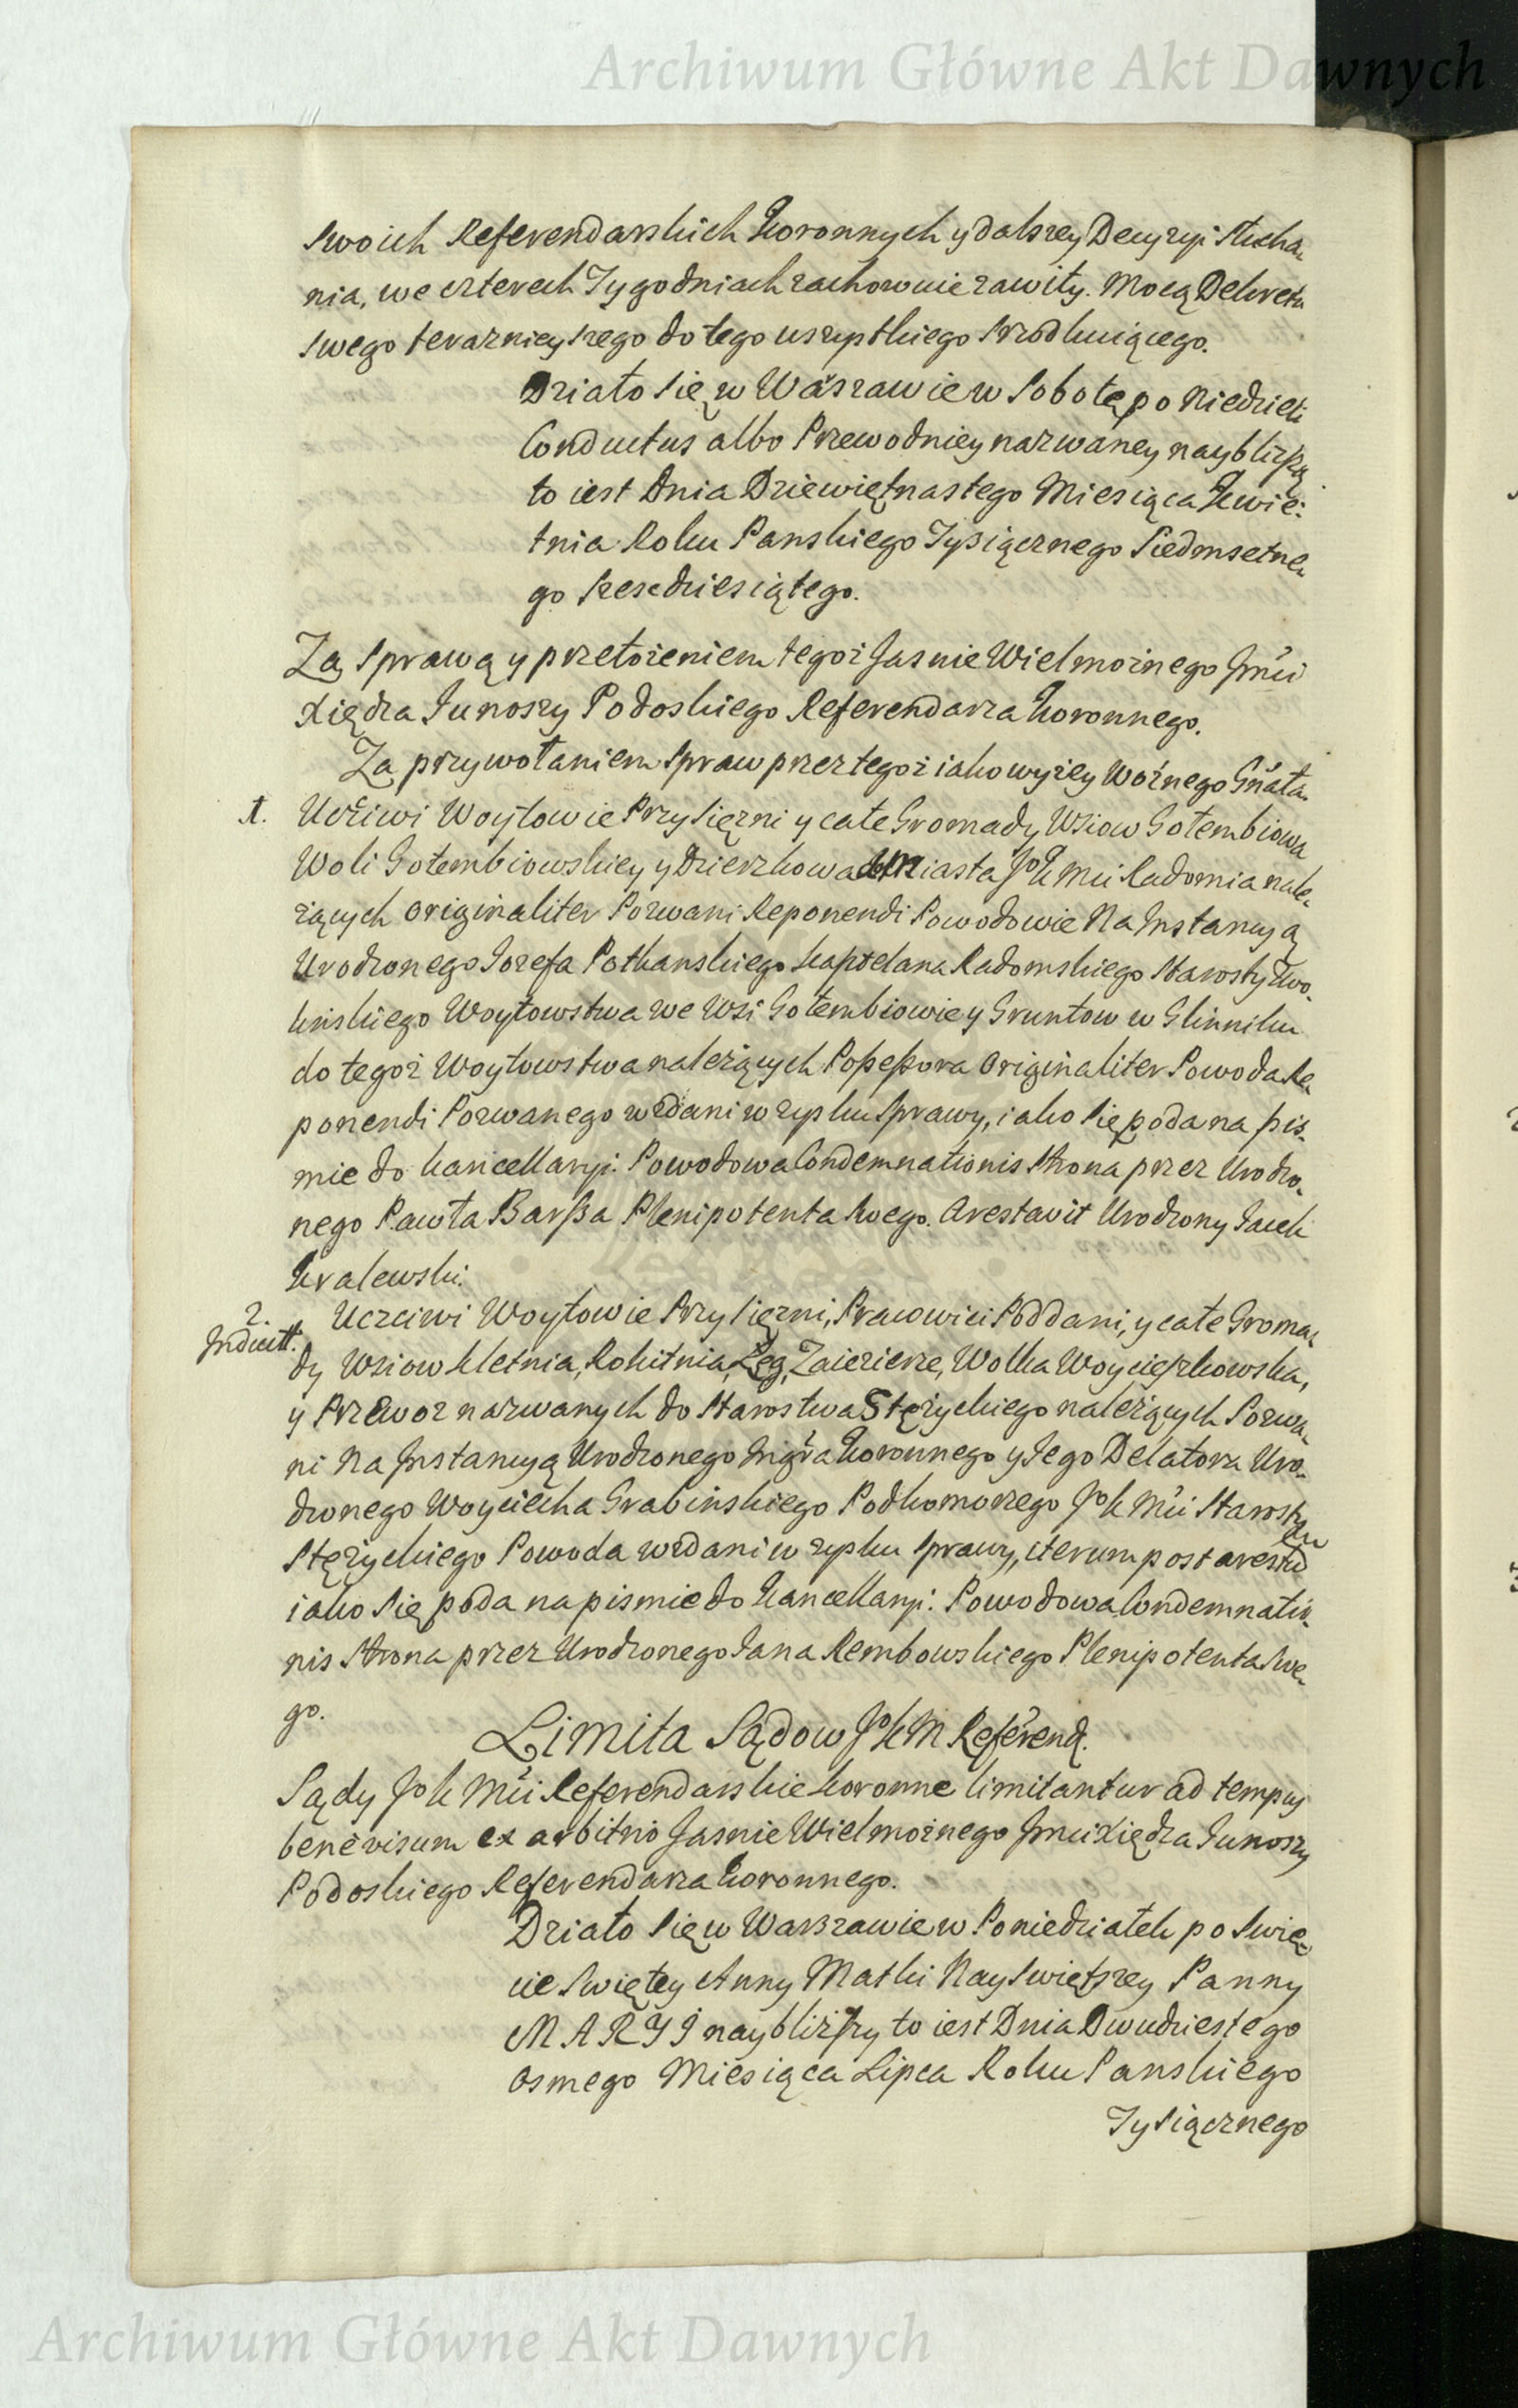 Archiwum Główne Akt Dawnych
swoich Referendarskich Koronnych y dalszey Decyzyi słucha-
nia, we czterech Tygodniach zachowuie zawity. Mocą Dekretu
swego teraznieyszego do tego wszystkiego srzodkuiącego.
Działo się w Warszawie w Sobotę po Niedzieli
Conductus albo Przewodniey nazwaney naybliższą
to iest Dnia Dziewiętnastego Miesiąca Kwie-
tnia Roku Panskiego Tysiącznego Siedmsetne-
go szescdziesiątego.
Za sprawą y przełożeniem tegoż Jasnie Wielmożnego Jmci
Xiędza Junoszy Podoskiego Referendarza Koronnego.
Za przywołaniem spraw przez tegoż iako wyżey Woźnego Gnata
1. Uczciwi Woytowie Przysiężni y całe Gromady Wsiow Gołembiowa
Woli Gołembiowskiey y Dzierzkowa do Miasta JoKMci Radomia nale-
żących originaliter Pozwani Reponendi Powodowie Na Instancyą
Urodzonego Jozefa Potkanskiego Kasztelana Radomskiego Starosty Zwo-
lińskiego Woytowstwa we Wsi Gołembiowie y Gruntow w Glinniku
do tegoż Woytowstwa należących Possessora originaliter Powoda Re-
ponendi Pozwanego wzdani w zysku sprawy, iako się poda na pis-
mie do kancellaryi. Powodowa Condemnationis strona przez Urodzo-
nego Pawła Barssa Plenipotenta swego. Arestavit Urodzony Jacek
Kralewski.
2. Uczciwi Woytowie Przysiężni, Pracowici Poddani, y całe Groma-
Indicitt.
dy Wsiow Kletnia, Rokitnia, Łęg, Zaiezierze, Wolka Woycieszkowska,
y Przewoz nazwanych do Starostwa Stężyckiego należących Pozwa-
ni Na Instancyą Urodzonego Instigatora Koronnego y Jego Delatora Uro-
dzonego Woyciecha Grabinskiego Podkomorzego JoKMci Starosty
Stężyckiego Powoda wzdani w zysku sprawy, iterum post arestum
iako się poda na pismie do Kancellaryi. Powodowa Condemnatio-
nis strona przez Urodzonego Jana Rembowskiego Plenipotenta swe-
go.
Limita Sądow JoKM Referend.
Sądy JoKMci Referendarskie koronne limitantur ad tempus
bene visum ex arbitrio Jasnie Wielmożnego Jmci Xiędza Junoszy
Podoskiego Referendarza Koronnego.
Działo się w Warszawie w Poniedziałek po Swię-
cie Swiętey Anny Matki Nayswiętszey Panny
MARYI naybliższy to iest Dnia Dwudziestego
osmego Miesiąca Lipca Roku Panskiego
Tysiącznego
Archiwum Główne Akt Dawnych